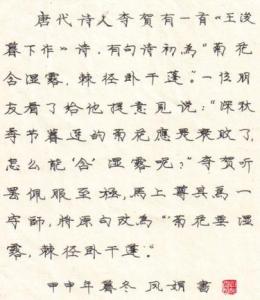 唐代诗人李贺有一首《王濬
墓下作》诗，有句诗初为“菊花
含湿露，棘径卧干蓬。”一位朋
友看了给他提意见说：“深秋
季节墓边的菊花应是衰败了，
怎么能‘含’湿露呢？”李贺听
罢佩服至極，馬上尊其為一
字師，將原句改為“菊花垂湿
露，棘径卧干蓬。”
甲申年暮冬 凤娟 書